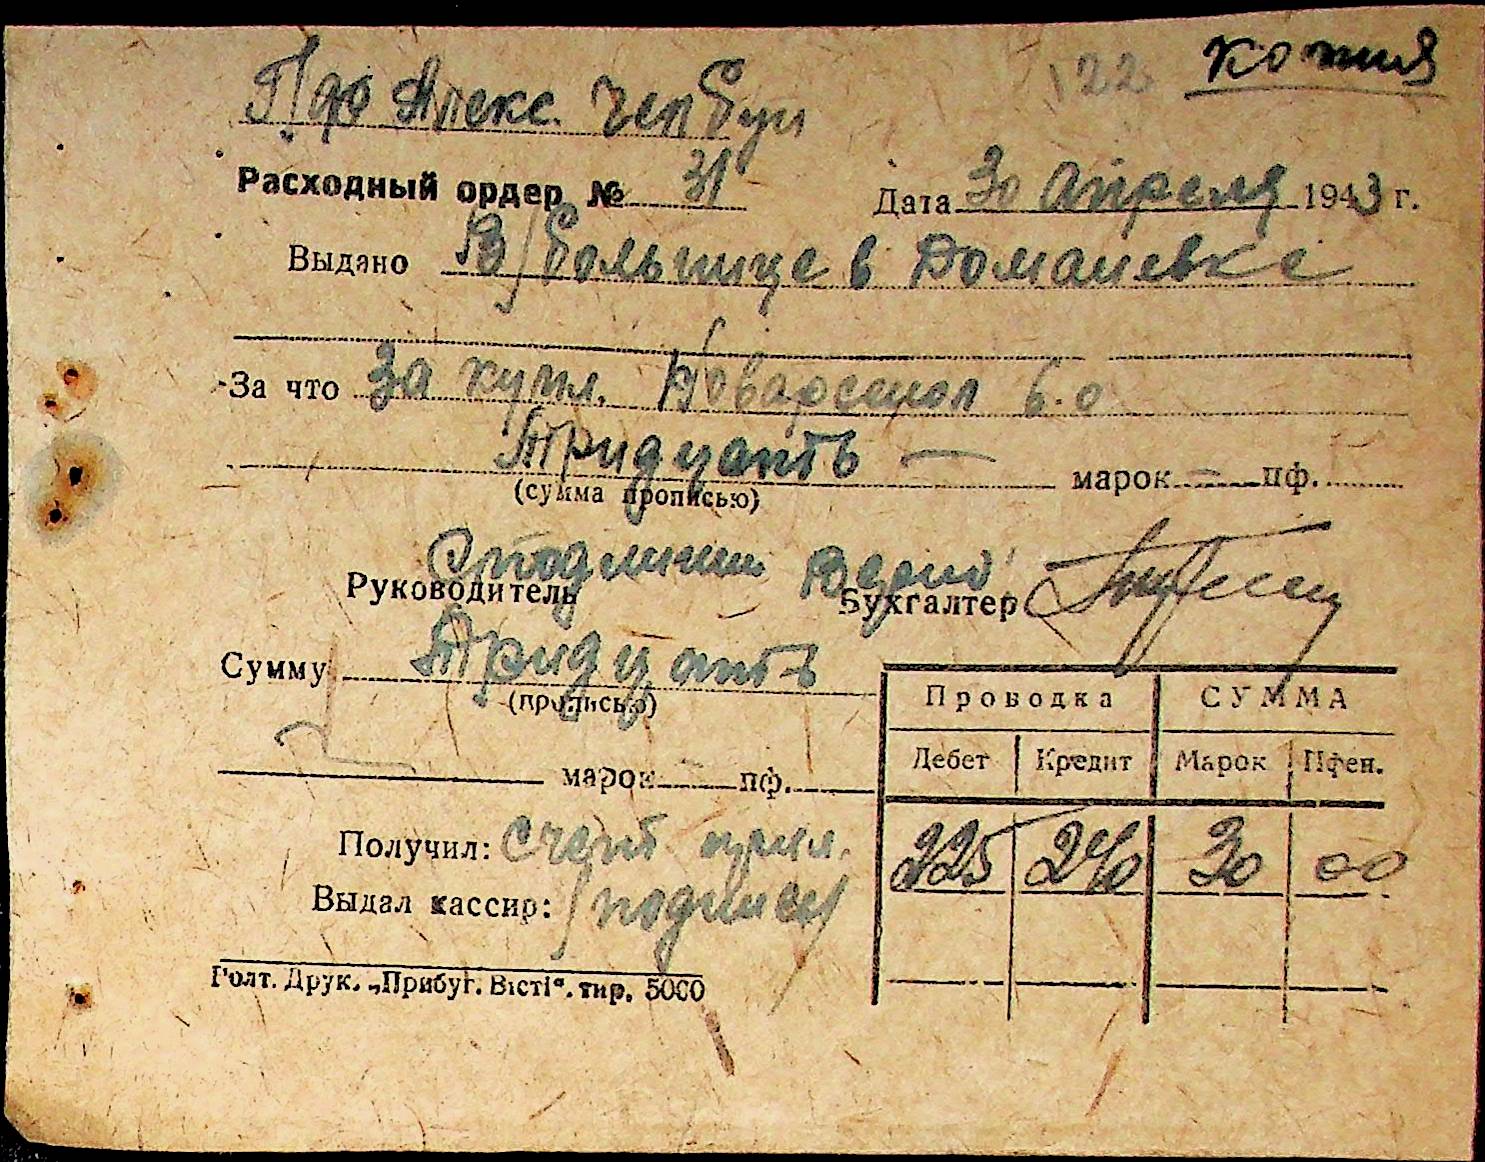 122 копия
Пдо Алекс.
Расходный ордер № 31 Дата 30 Апреля 1943 г.
Выдано В/больнице в Доманевке
За что За купл. 6.0
Тридцать — марок = пф.
(сумма прописью)
С подлинным Верно
Руководитель Бухгалтер
Сумму Тридцать
(прописью)
марок пф.
Проводка СУММА
Дебет Кредит Марок Пфен.
225 240 30 00
Получил: счет прил.
Выдал кассир: /подписи/
Голт. Друк. „Прибуг. Вісті“. тир. 5000